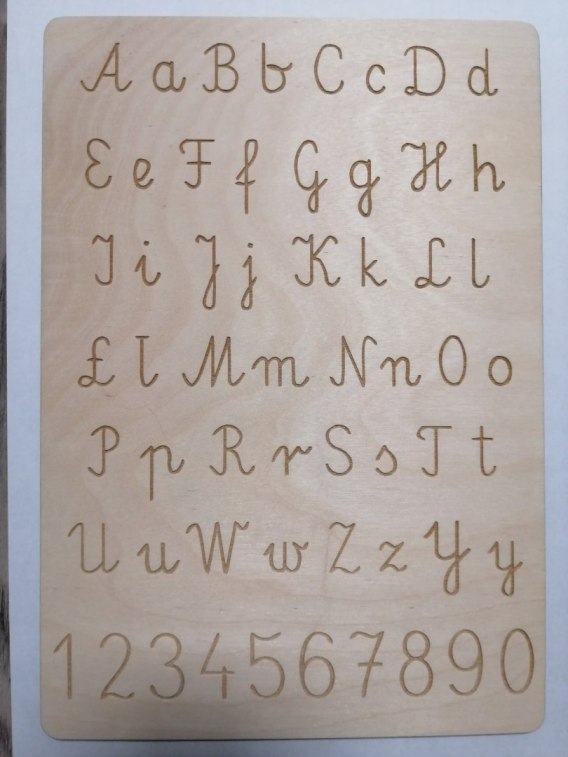 A a B b C c D d
E e F f G g H h
I i J j K k L l
Ł ł M m N n O o
P p R r S s T t
U u W w Z z Y y
1234567890